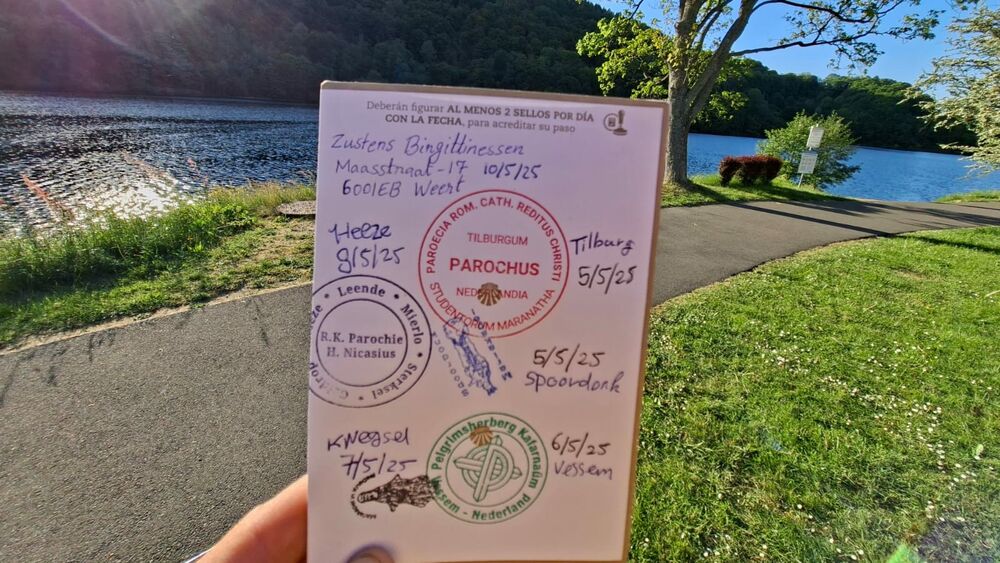 Deberán figurar AL MENOS 2 SELLOS POR DÍA
CON LA FECHA, para acreditar su paso
Zustens Bingittinessen
Maasstraat-17 10/5/25
6001EB Weert
Heeze
9/5/25
PAROECIA ROM. CATH. REDITUS CHRISTI
TILBURGUM
PAROCHUS
STUDENTORUM MARANATHA
Tilburg
5/5/25
Leende • Mierlo • Sterksel •
R.K. Parochie
H. Nicasius
5/5/25
Spoordonk
Kwegsel
7/5/25
Pelgrimsherberg Kafarnaüm
Vessem - Nederland
6/5/25
Vessem